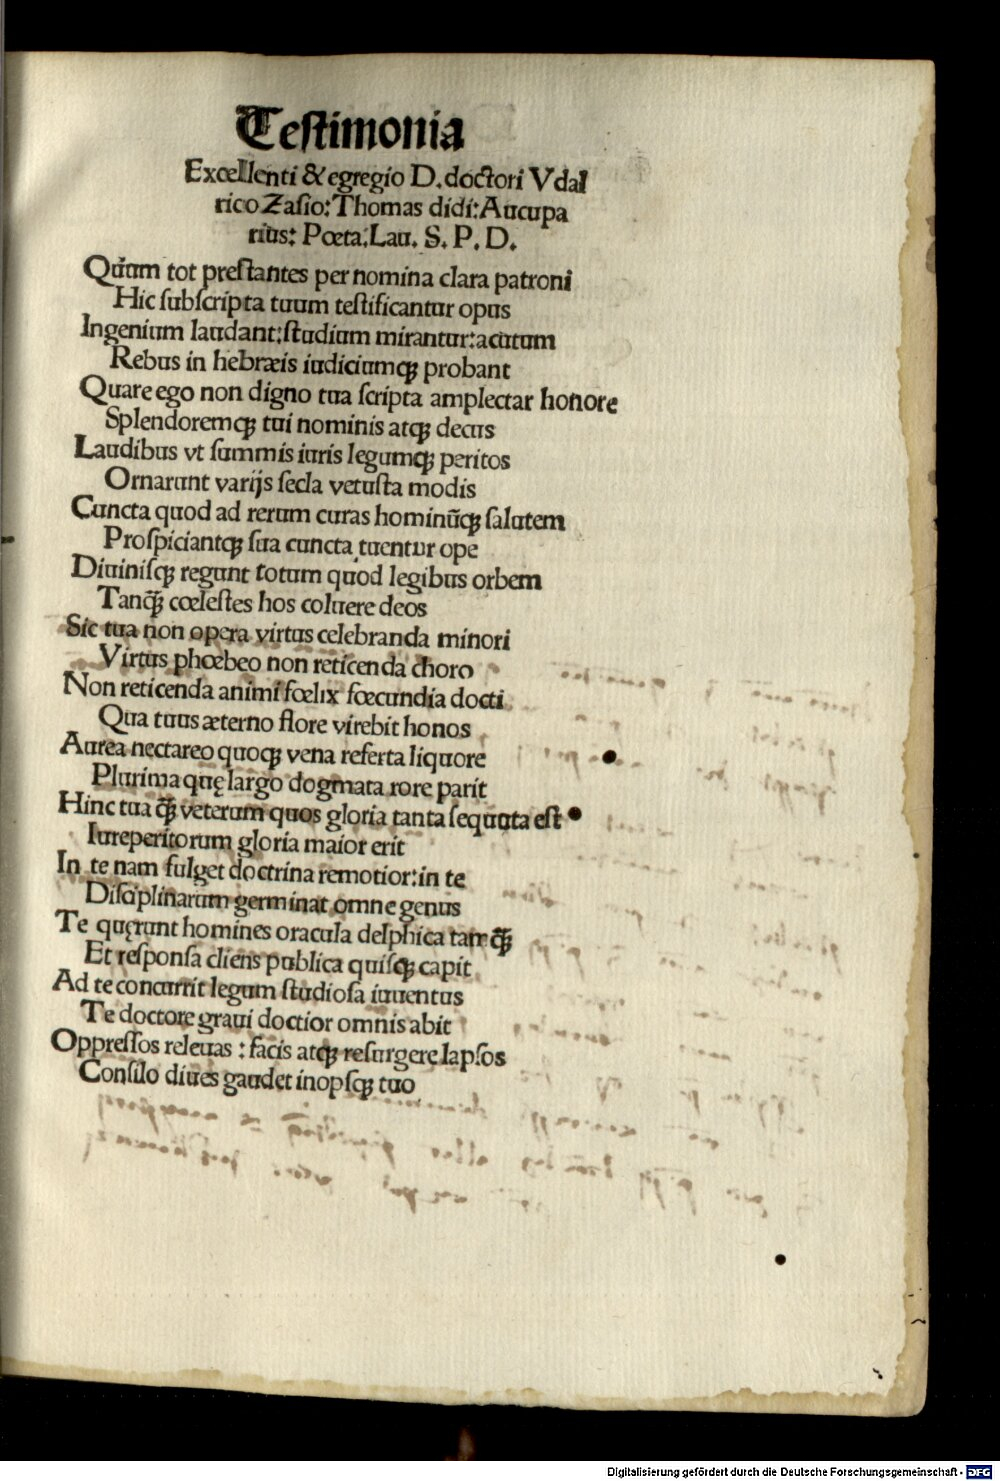 Testimonia
Excellenti & egregio D. doctori Vdal
rico Zasio: Thomas didi: Aucupa
rius: Poeta: Lau. S. P. D.
Quum tot prestantes per nomina clara patroni
Hic subscripta tuum testificantur opus
Ingenium laudant: studium mirantur: acutum
Rebus in hebræis iudiciumqꝫ probant
Quare ego non digno tua scripta amplectar honore
Splendoremqꝫ tui nominis atqꝫ decus
Laudibus vt summis iuris legumqꝫ peritos
Ornarunt varijs secla vetusta modis
Cuncta quod ad rerum curas hominūqꝫ salutem
Prospiciantqꝫ sua cuncta tuentur ope
Diuinisqꝫ regunt totum quod legibus orbem
Tanqꝫ̃ cœlestes hos coluere deos
Sic tua non opera virtus celebranda minori
Virtus phœbeo non reticenda choro
Non reticenda animi fœlix fœcundia docti
Qua tuus æterno flore virebit honos
Aurea nectareo quoqꝫ vena referta liquore
Plurima quę largo dogmata rore parit
Hinc tua qꝫ̃ veterum quos gloria tanta sequuta est
Iureperitorum gloria maior erit
In te nam fulget doctrina remotior: in te
Disciplinarum germinat omne genus
Te quęrunt homines oracula delphica tanqꝫ̃
Et responsa cliens publica quisqꝫ capit
Ad te concurrit legum studiosa iuuentus
Te doctore graui doctior omnis abit
Oppressos releuas : facis atqꝫ resurgere lapsos
Consilo diues gaudet inopsqꝫ tuo
Digitalisierung gefördert durch die Deutsche Forschungsgemeinschaft - DFG